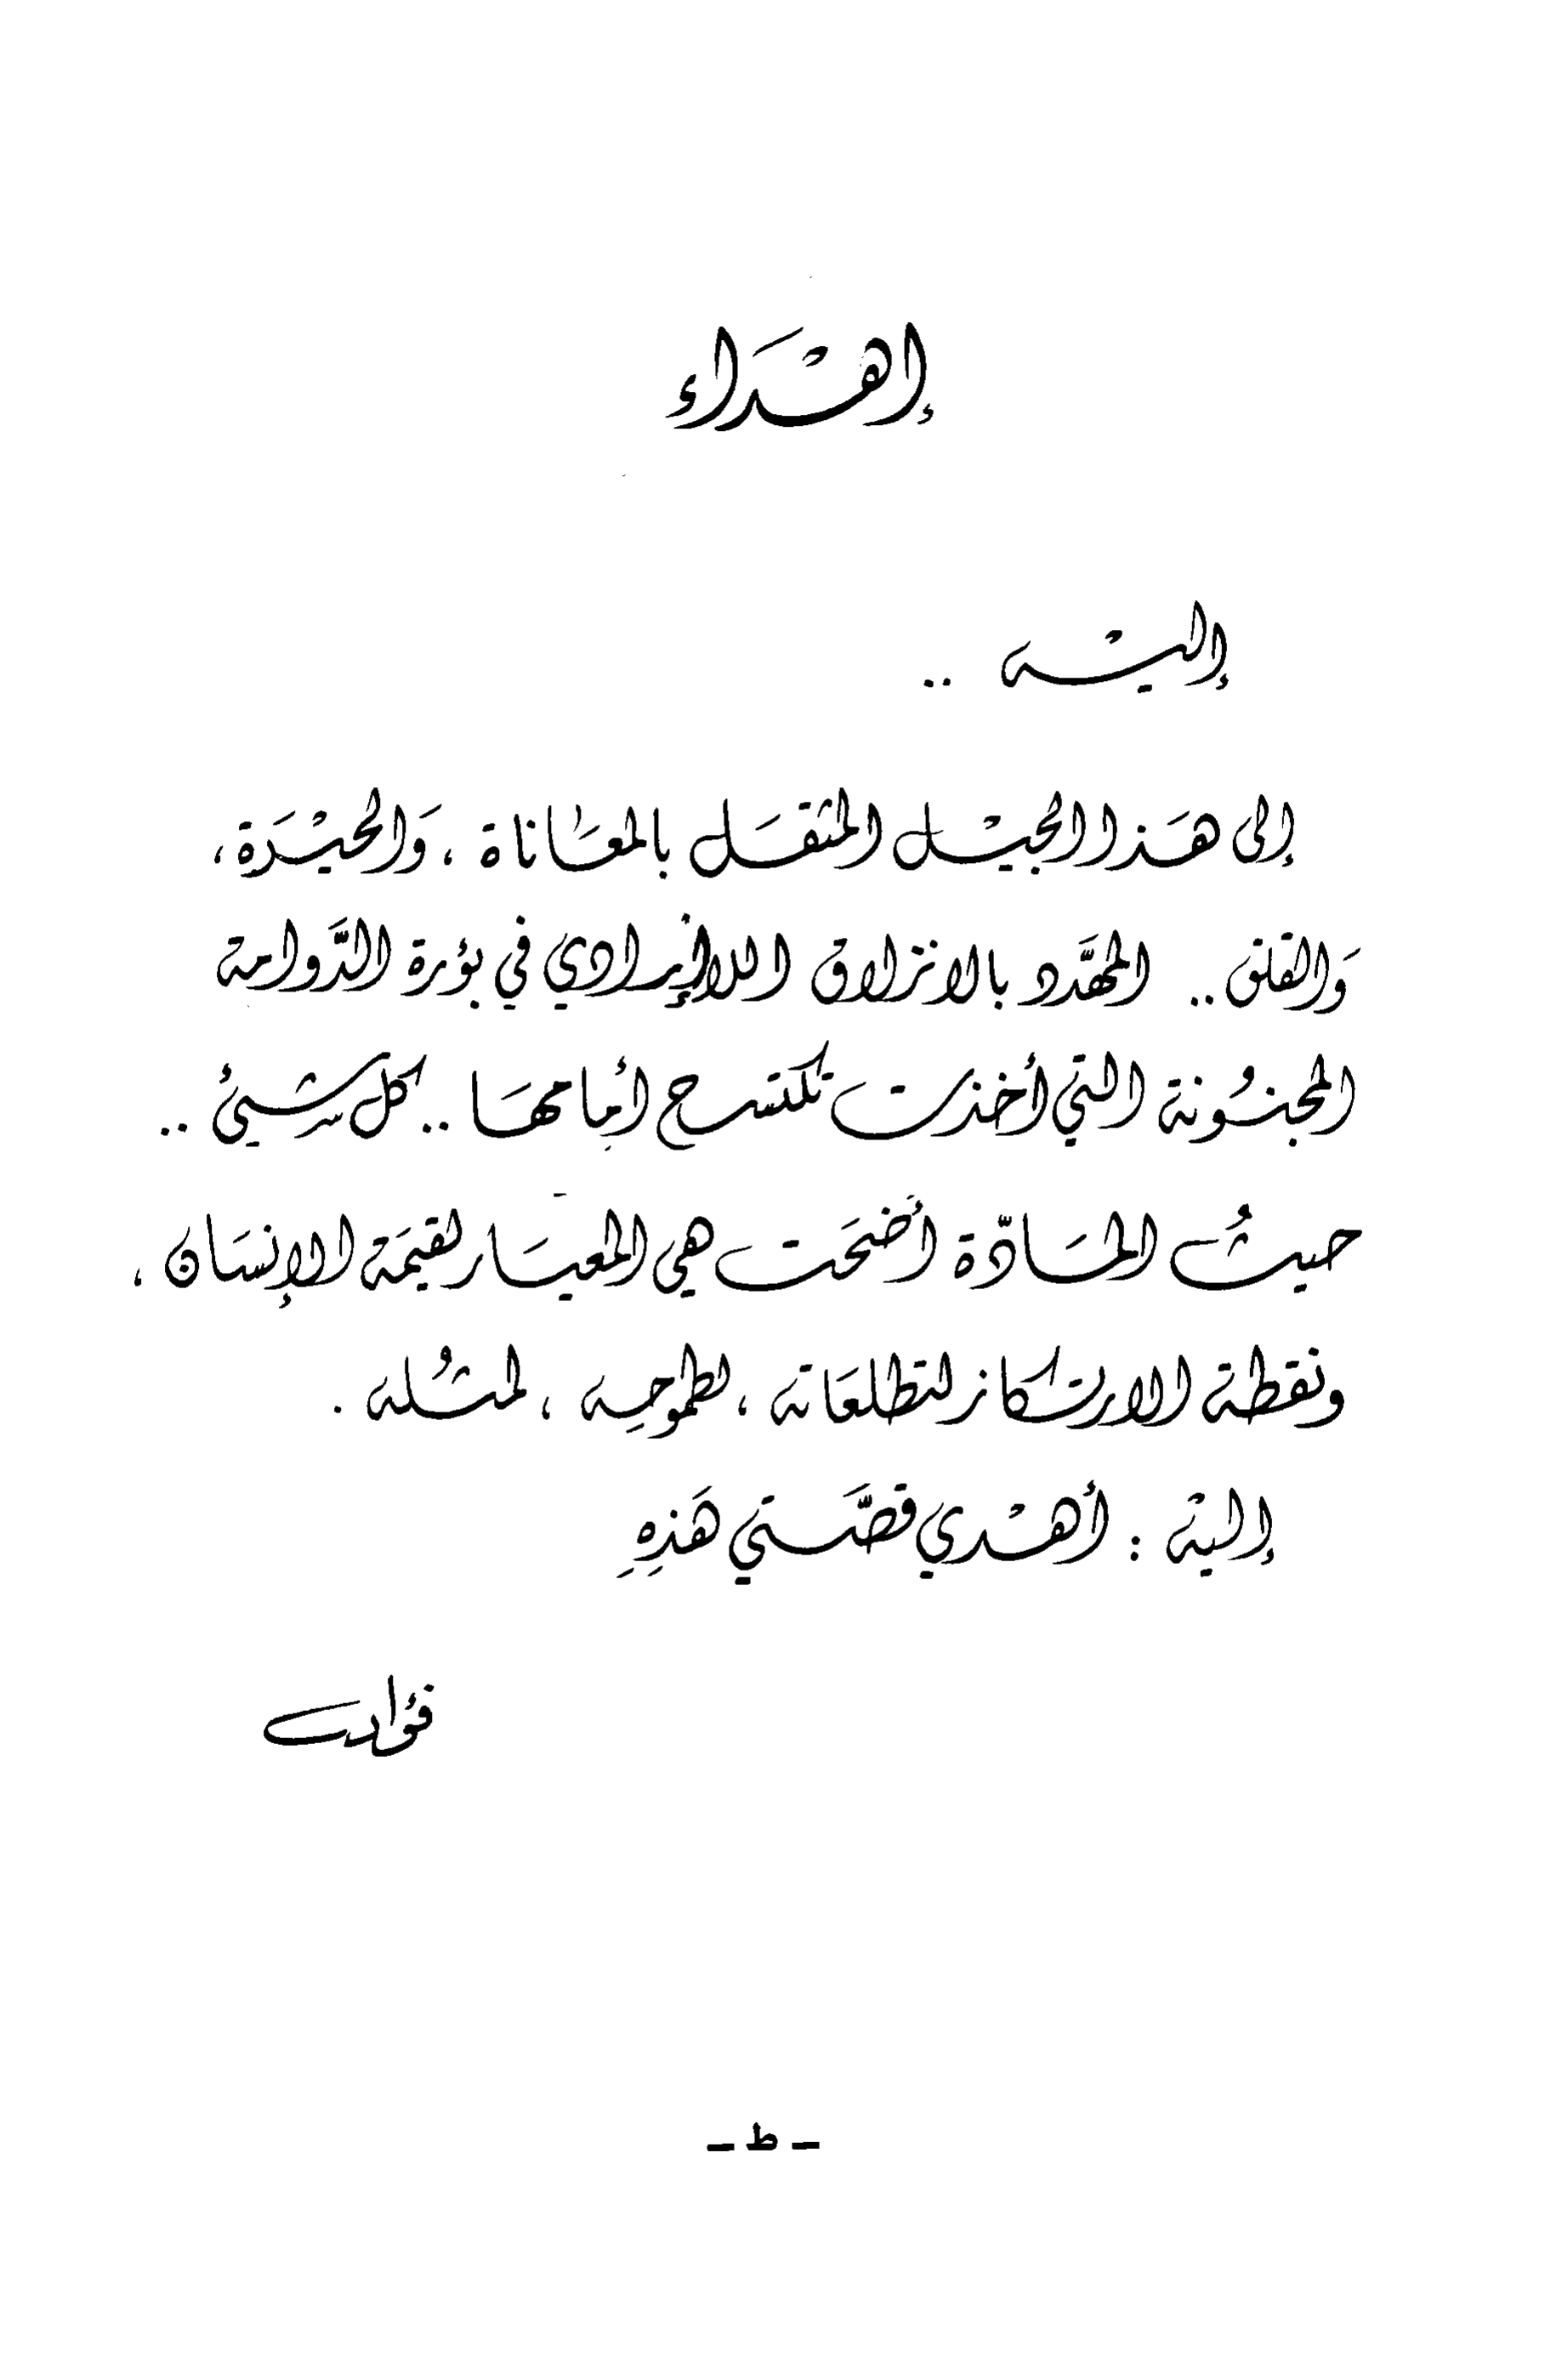 إهْدَاء
إليْه ..
إلى هَذا الجيْل المثقَل بالمعَاناة ، وَالحيْرَة ،
وَالقلق .. المهَّدد بالانزلاق اللاإرادي في بؤرة الدَّوامة
المجنُونة التي أخذت تكتسح أمامهَا .. كل شيئ ..
حيثُ المَادّة أضحَت هي المعيَار لقيمَة الإنسَان ،
ونقطة الارتكاز لتطلعَاته ، لطموحِه ، لمثُله .
إليْه : أهْدي قصَّتي هَذِهِ
فؤاد
– ط –